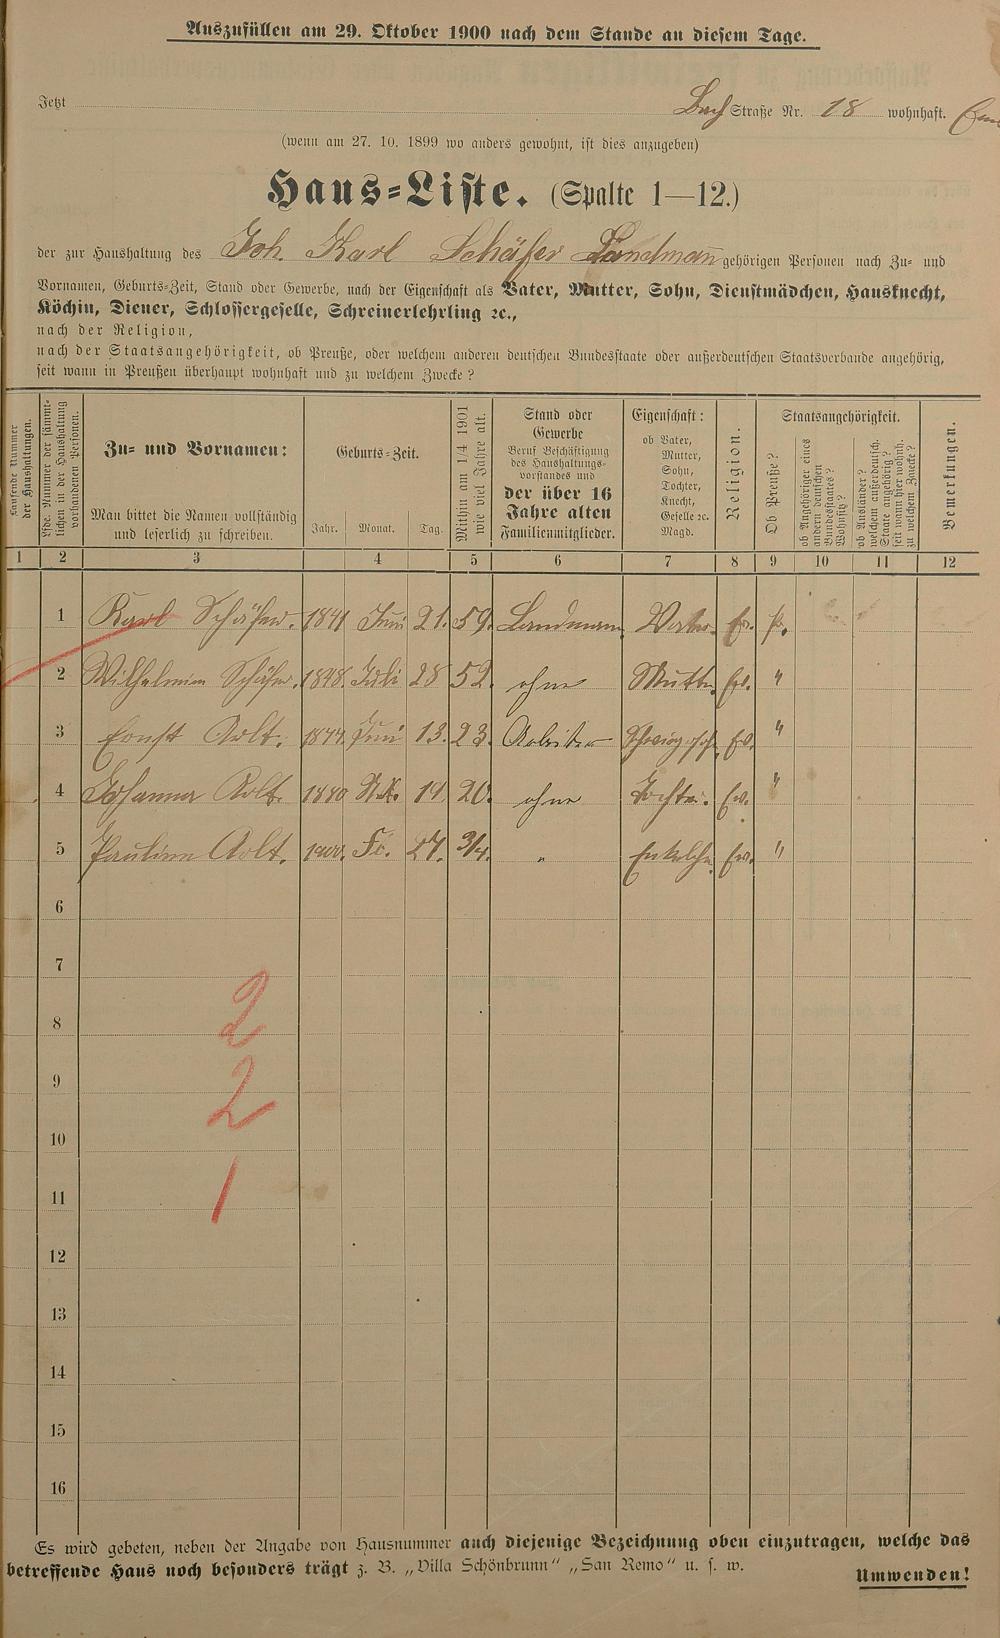 Auszufüllen am 29. Oktober 1900 nach dem Stande an diesem Tage.
Jetzt Bach Straße Nr. 18 wohnhaft.
(wenn am 27. 10. 1899 wo anders gewohnt, ist dies anzugeben)
Haus-Liste. (Spalte 1—12.)
der zur Haushaltung des Joh. Karl Schäfer Landmann gehörigen Personen nach Zu- und
Vornamen, Geburts-Zeit, Stand oder Gewerbe, nach der Eigenschaft als Vater, Mutter, Sohn, Dienstmädchen, Hausknecht,
Köchin, Diener, Schlossergeselle, Schreinerlehrling ꝛc.,
nach der Religion,
nach der Staatsangehörigkeit, ob Preuße, oder welchem anderen deutschen Bundesstaate oder außerdeutschen Staatsverbande angehörig,
seit wann in Preußen überhaupt wohnhaft und zu welchem Zwecke?
Laufende Nummer der Haushaltungen.
Lfde. Nummer der sämmtlichen in der Haushaltung vorhandenen Personen.
Zu- und Vornamen:
Man bittet die Namen vollständig
und leserlich zu schreiben.
Geburts-Zeit.
Jahr. Monat. Tag.
Mithin am 1/4 1901 wie viel Jahre alt.
Stand oder
Gewerbe
Beruf Beschäftigung
des Haushaltungs-
vorstandes und
der über 16
Jahre alten
Familienmitglieder.
Eigenschaft:
ob Vater,
Mutter,
Sohn,
Tochter,
Knecht,
Geselle ꝛc.
Magd.
Religion.
Staatsangehörigkeit.
Ob Preuße?
ob Angehöriger eines andern deutschen Bundesstaates? Wohnsitz?
ob Ausländer? welchem außerdeutsch. Staate angehörig? seit wann hier wohnh. zu welchem Zwecke?
Bemerkungen.
1 2 3 4 5 6 7 8 9 10 11 12
1 Karl Schäfer. 1841 Juni 21. 59. Landmann Vater. Ev. Pr.
2 Wilhelmine Schäfer. 1848. Juli 28 52. ohne Mutter Ev. "
3 Ernst Arlt. 1877. Juni 13. 23. Arbeiter Ev. "
4 Johanna Arlt. 1880 19. 20. ohne Tochter. Ev. "
5 Pauline Arlt. 1900. Fe. 27. 3/4. " Enkelche Ev. "
6
7
8
9
10
11
12
13
14
15
16
2
2
1
Es wird gebeten, neben der Angabe von Hausnummer auch diejenige Bezeichnung oben einzutragen, welche das
betreffende Haus noch besonders trägt z. B. „Villa Schönbrunn" „San Remo" u. s. w.
Umwenden!